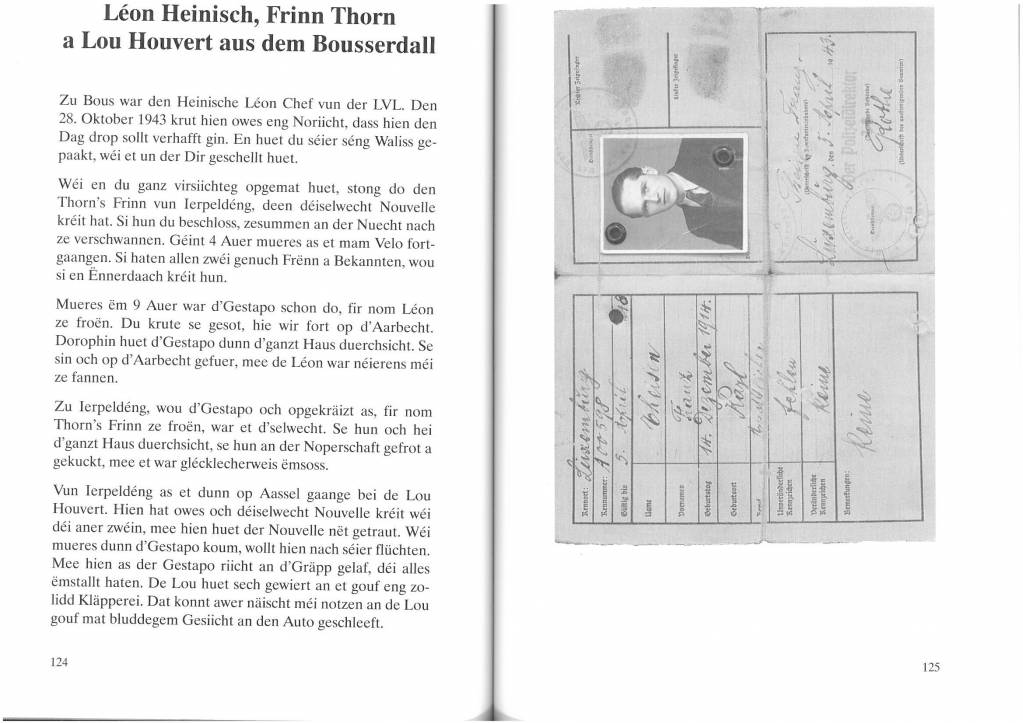 Léon Heinisch, Frinn Thorn
a Lou Houvert aus dem Bousserdall
Zu Bous war den Heinische Léon Chef vun der LVL. Den
28. Oktober 1943 krut hien owes eng Noriicht, dass hien den
Dag drop sollt verhafft gin. En huet du séier séng Waliss ge-
paakt, wéi et un der Dir geschellt huet.
Wéi en du ganz virsiichteg opgemat huet, stong do den
Thorn's Frinn vun Ierpeldéng, deen déiselwecht Nouvelle
kréit hat. Si hun du beschloss, zesummen an der Nuecht nach
ze verschwannen. Géint 4 Auer mueres as et mam Velo fort-
gaangen. Si haten allen zwéi genuch Frënn a Bekannten, wou
si en Ënnerdaach kréit hun.
Mueres ëm 9 Auer war d'Gestapo schon do, fir nom Léon
ze froën. Du krute se gesot, hie wir fort op d'Aarbecht.
Dorophin huet d'Gestapo dunn d'ganzt Haus duerchsicht. Se
sin och op d'Aarbecht gefuer, mee de Léon war néierens méi
ze fannen.
Zu Ierpeldéng, wou d'Gestapo och opgekräizt as, fir nom
Thorn's Frinn ze froën, war et d'selwecht. Se hun och hei
d'ganzt Haus duerchsicht, se hun an der Noperschaft gefrot a
gekuckt, mee et war glécklecherweis ëmsoss.
Vun Ierpeldéng as et dunn op Aassel gaange bei de Lou
Houvert. Hien hat owes och déiselwecht Nouvelle kréit wéi
déi aner zwéin, mee hien huet der Nouvelle nët getraut. Wéi
mueres dunn d'Gestapo koum, wollt hien nach séier flüchten.
Mee hien as der Gestapo riicht an d'Gräpp gelaf, déi alles
ëmstallt haten. De Lou huet sech gewiert an et gouf eng zo-
lidd Kläpperei. Dat konnt awer näischt méi notzen an de Lou
gouf mat bluddegem Gesiicht an den Auto geschleeft.
124
Rechter Zeigefinger
Linker Zeigefinger
Luxemburg, den 5. April 1943.
Der Polizeidirektor
Rothe
Kennort: Luxemburg
Kennummer: A00598
Gültig bis 5. April 1948
Name
Vornamen Franz
Geburtstag 14. Dezember 1914.
Geburtsort
Unveränderliche Kennzeichen fehlen
Veränderliche Kennzeichen Keine
Bemerkungen: Keine
125